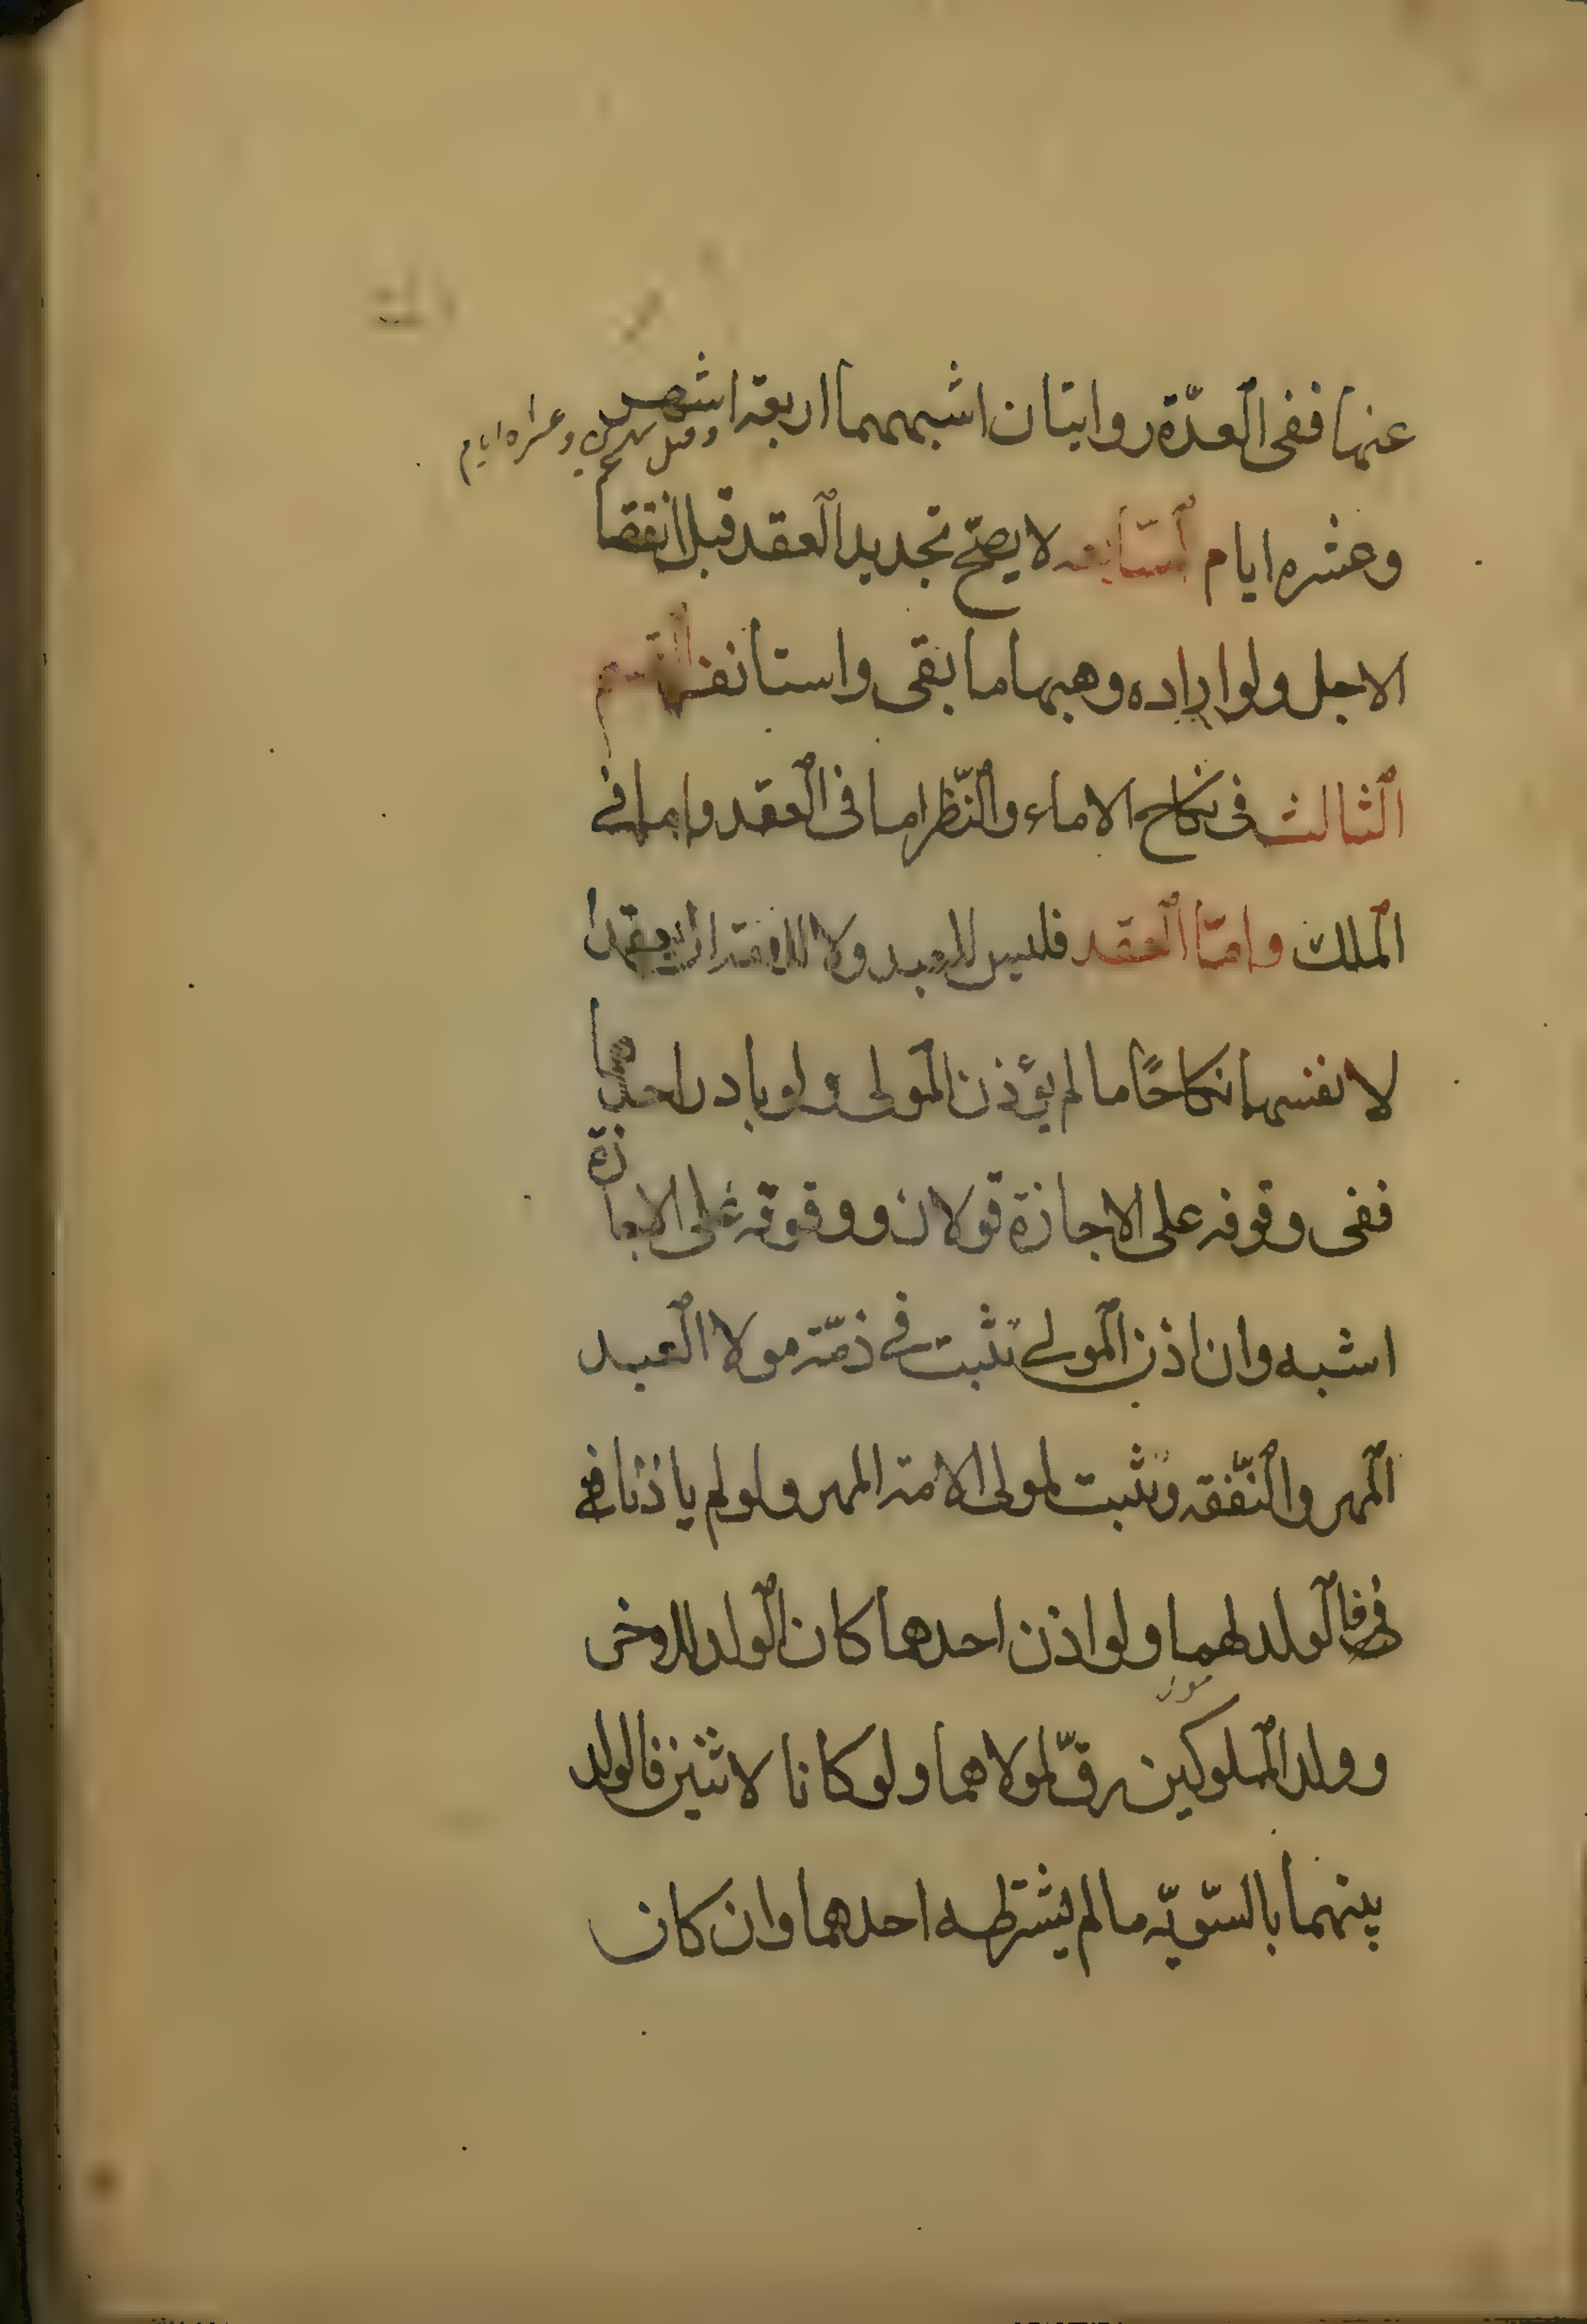 عنها ففى العدّة روايتان اشبههما اربعة اشهر
وعشره ايام
وعشره ايام السّابعه لا يصحّ تجديد العقد قبل انقضا
الاجل ولو اراده وهبها ما بقى واستانف القسم
الثالث فى نكاح الاماء والنّظر اما فى العقد واما فے
الملك وامّا العقد فليس للعبد ولا للامة ان يعقدا
لانفسهما نكاحًا ما لم يؤذن المولى ولو بادر احدهما
ففى وقوفه على الاجازة قولان ووقوفه على الاجازة
اشبه وان اذن المولے تثبت فے ذمّة مولا العبد
المهر والنّفقه وتثبت لمولى الامة المهر ولو لم ياذنا فے
فالولد لهما ولو اذن احدهما كان الولد للاخر
وولد المملوكين رقّ لمولاهما ولو كانا لاثنين فالولد
بينهما بالسّويّه ما لم يشترطه احدهما وان كان